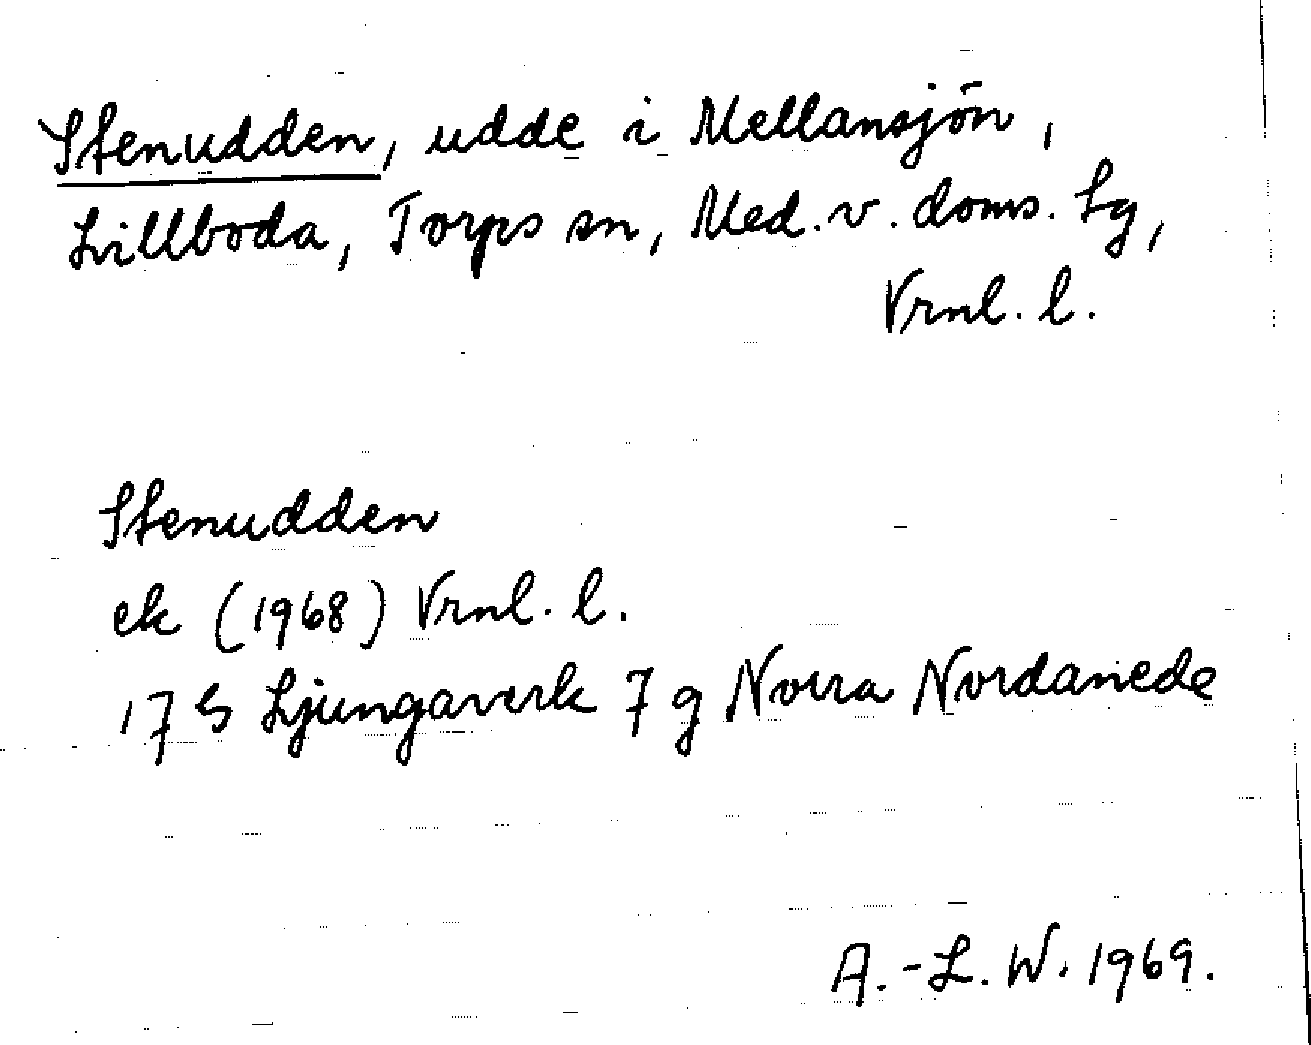 Stenudden, udde i Mellansjön,
Lillboda, Torps sn, Med. v. doms. lg,
Vrnl. l.
Stenudden
ek (1968) Vrnl. l.
17 G Ljungaverk 7 g Norra Nordanede
A.-L. W. 1969.